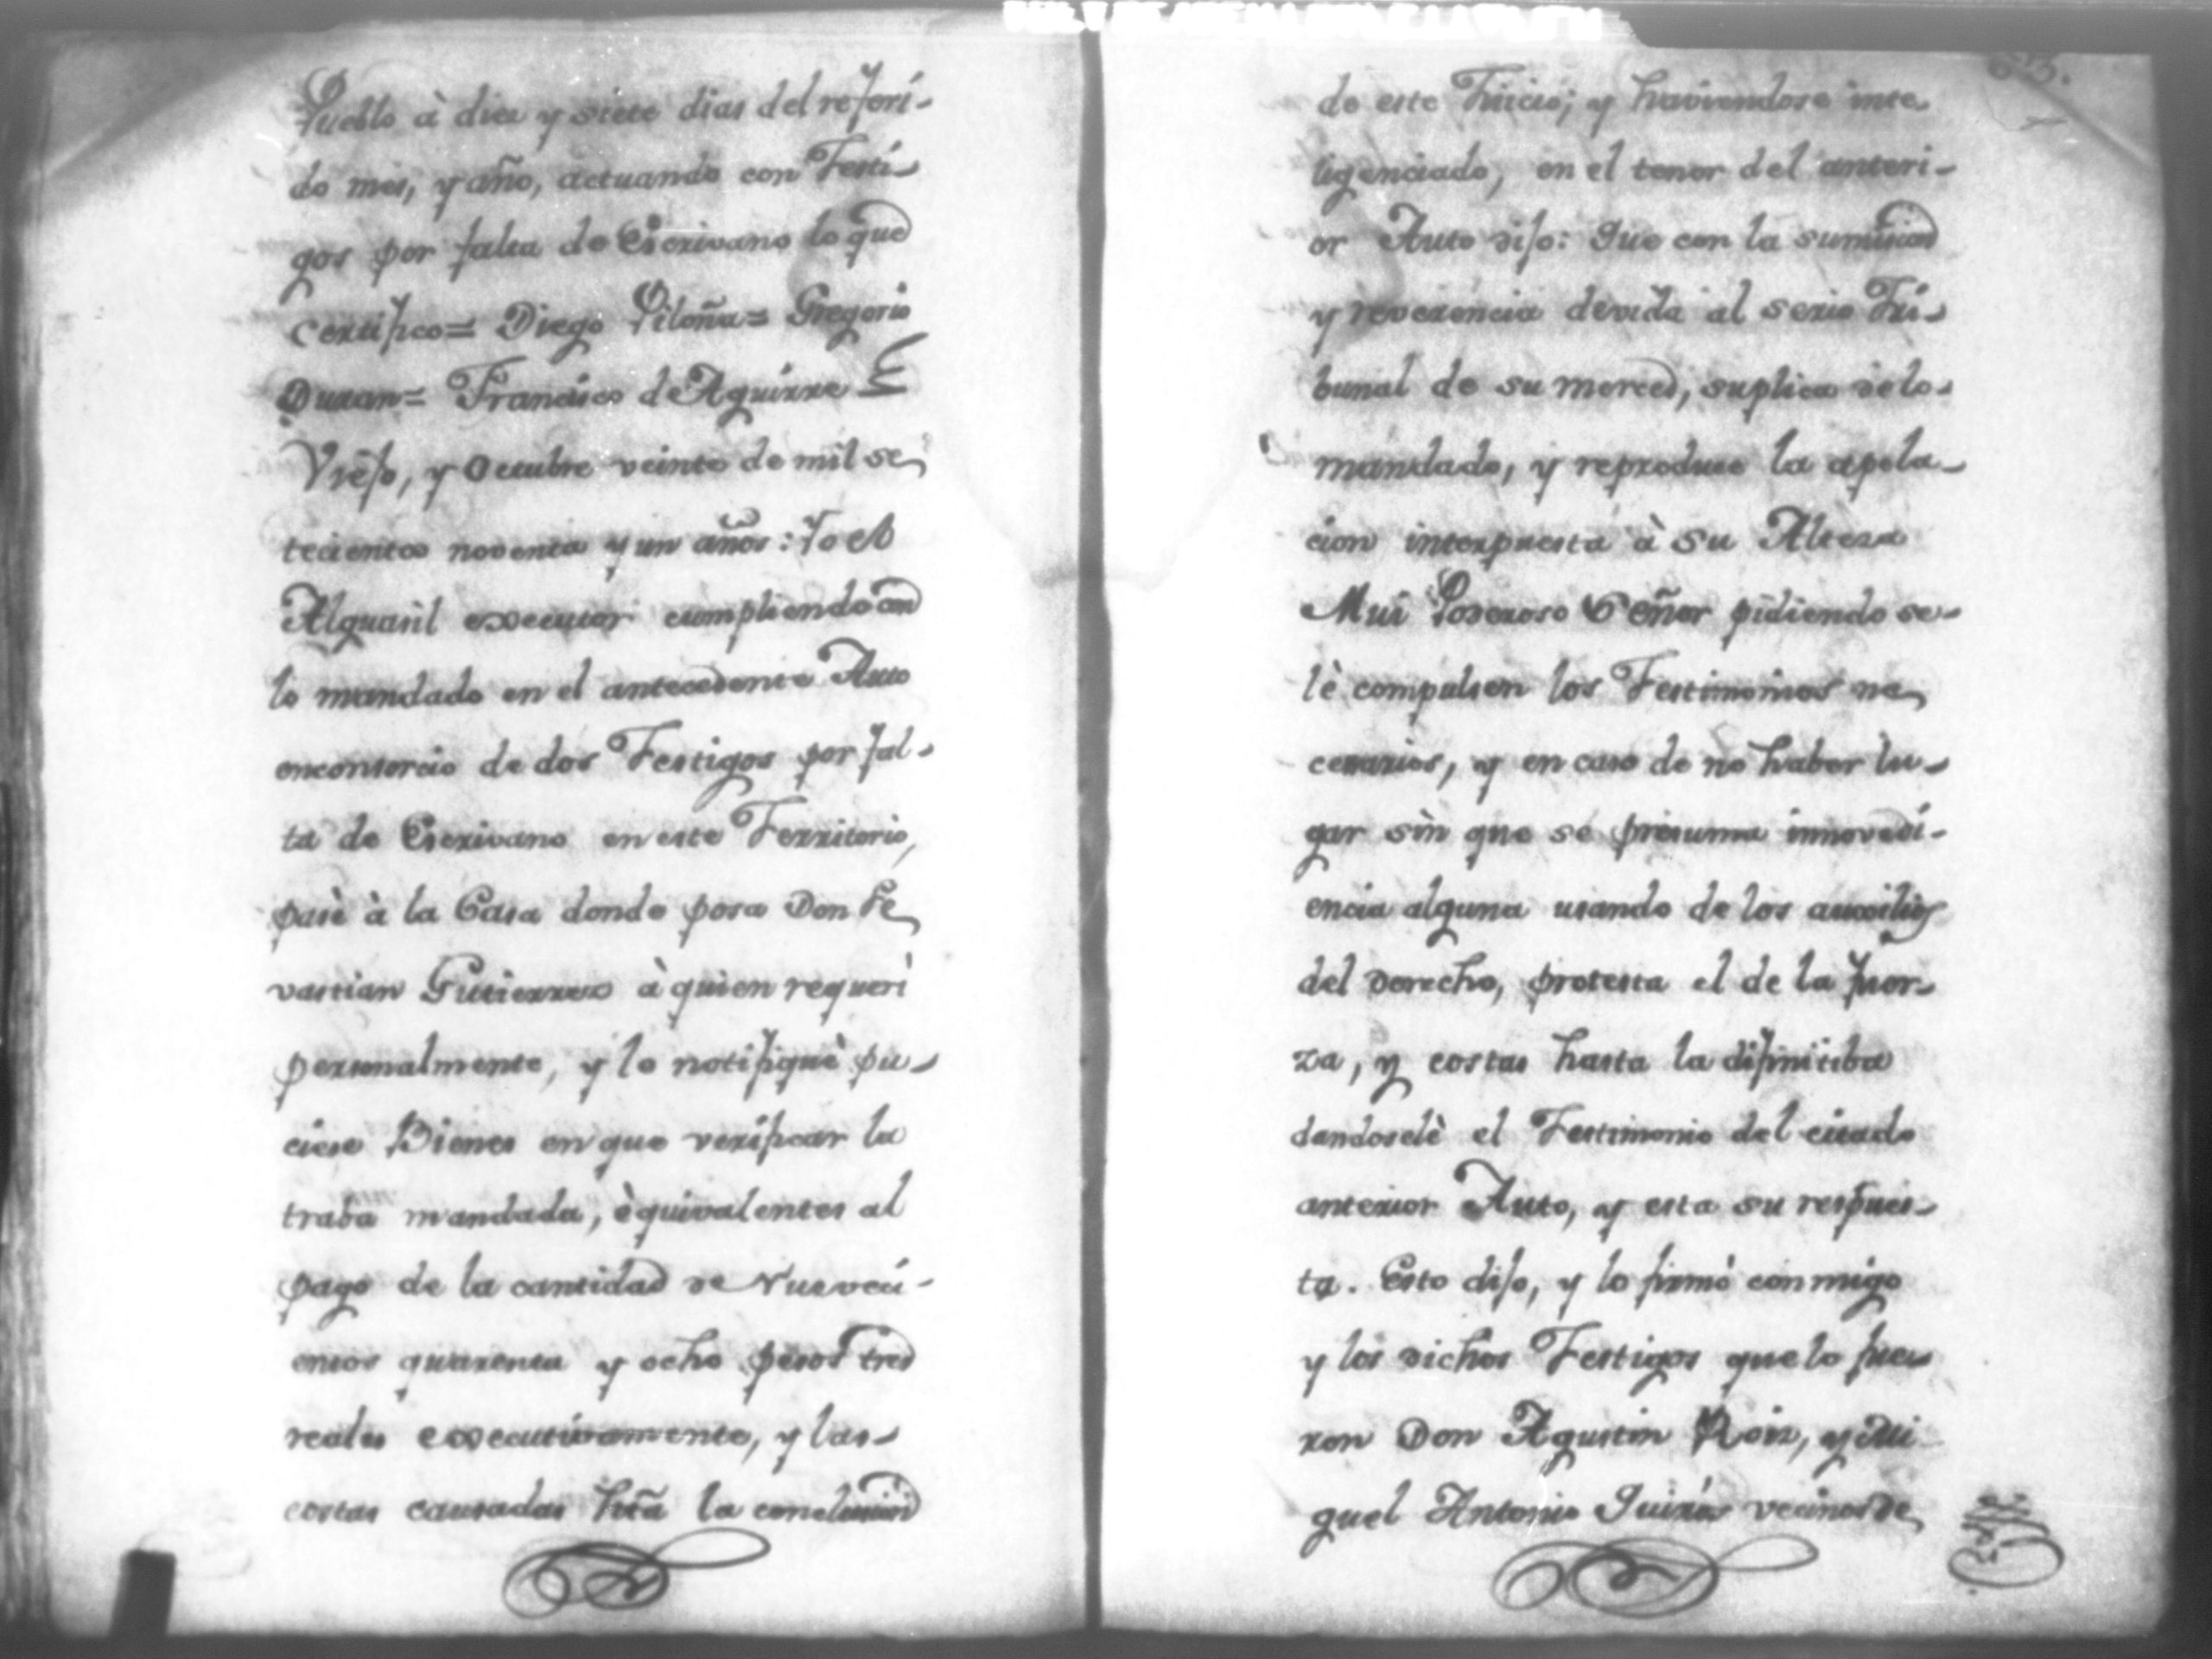 Pueblo à diez y siete dias del referi-
do mes, y año, actuando con Testi-
gos por falta de Escrivano lo que
certifico= Diego Piloña= Gregorio
Duran= Francisco de Aguirre
y Octubre veinte de mil se-
tecientos noventa y un años: Yo el
Alguasil executor cumpliendo con
lo mandado en el antecedente Auto
enconsorcio de dos Testigos por fal-
ta de Escrivano en este Territorio,
pasè à la Casa donde posa Don Se-
vastian Gutierrez à quien requerì
personalmente, y le notifiquè pu-
ciese Bienes en que verificar la
traba mandada, èquivalentes al
pago de la cantidad de Nuevecí-
entos quarenta y ocho pesos tres
reales executivamente, y las
costas causadas htã la conclusion
de este Juicio; y haviendose inte-
ligenciado, en el tenor del anteri-
or Auto dijo: Que con la sumision
y reverencia devida al serio Tri-
bunal de su merced, suplica delo
mandado, y reproduce la apela-
cion interpuesta à su Alteza
Mui Poderoso Señor pidiendo se-
lè compulsen los Testimonios ne-
cesarios, y en caso de no haber lu-
gar sin que se presuma innovedi-
encia alguna usando de los auxilios
del derecho, protesta el de la fuer-
za, y costas hasta la difinitiba
dandoselè el Testimonio del citado
anterior Auto, y esta su respues-
ta. Esto dijo, y lo firmò conmigo
y los dichos Testigos que lo fue-
ron Don Agustin Roiz, y Mi-
guel Antonio Quirós vecinos de